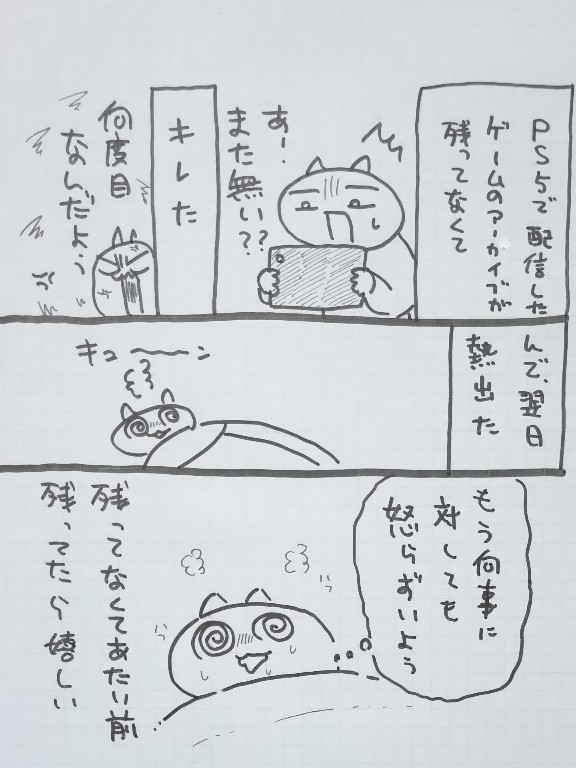 PS5で配信した
ゲームのアーカイブが
残ってなくて
あー、
また無い??
キレた
何度目
なんだよぅ
んで、翌日
熱出た
キューーン
もう何事に
対しても
怒らずいよう
残ってなくてあたい前
残ってたら嬉しい